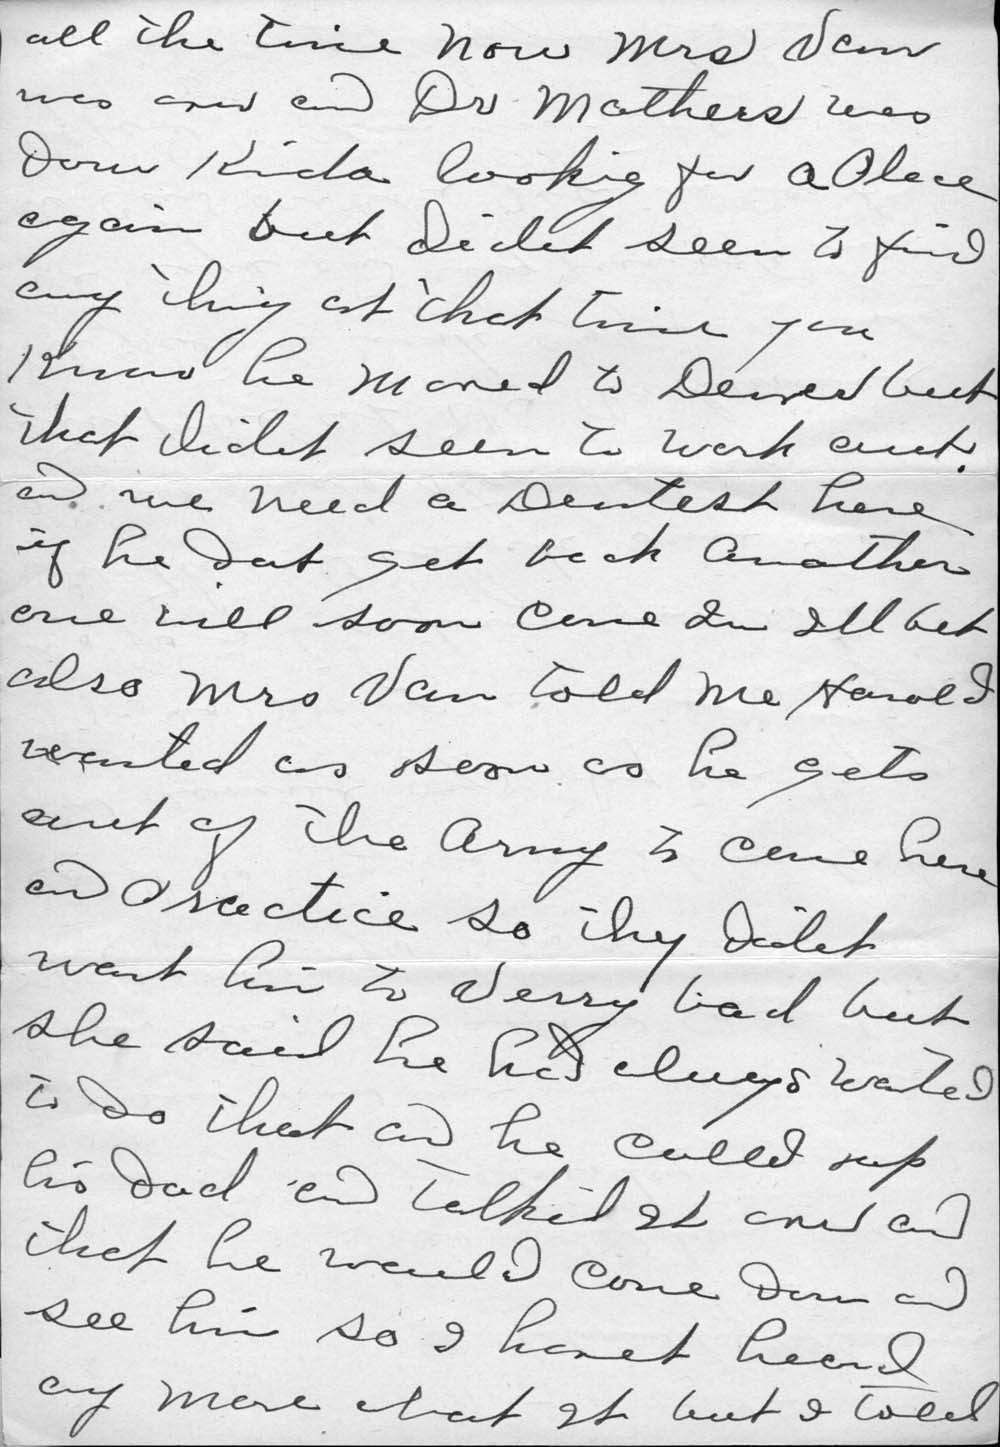 all the time now Mrs Van
was over and Dr Mathers was
down Kinda looking for a Place
again but didet seem to find
any thing at that time you
Know he moved to Denver but
that didet seem to work out.
and we need a Dentest here
if he dont get back Another
one will soon come In Ill bet
also Mrs Van told me Harold
wanted as soon as he gets
out of the Army to come here
and Practice so they didet
want him to Verry bad but
she said he had always wated
to do that and he called up
his Dad and talked It over and
that he would come down and
see him so I havet heard
any more about It but I told